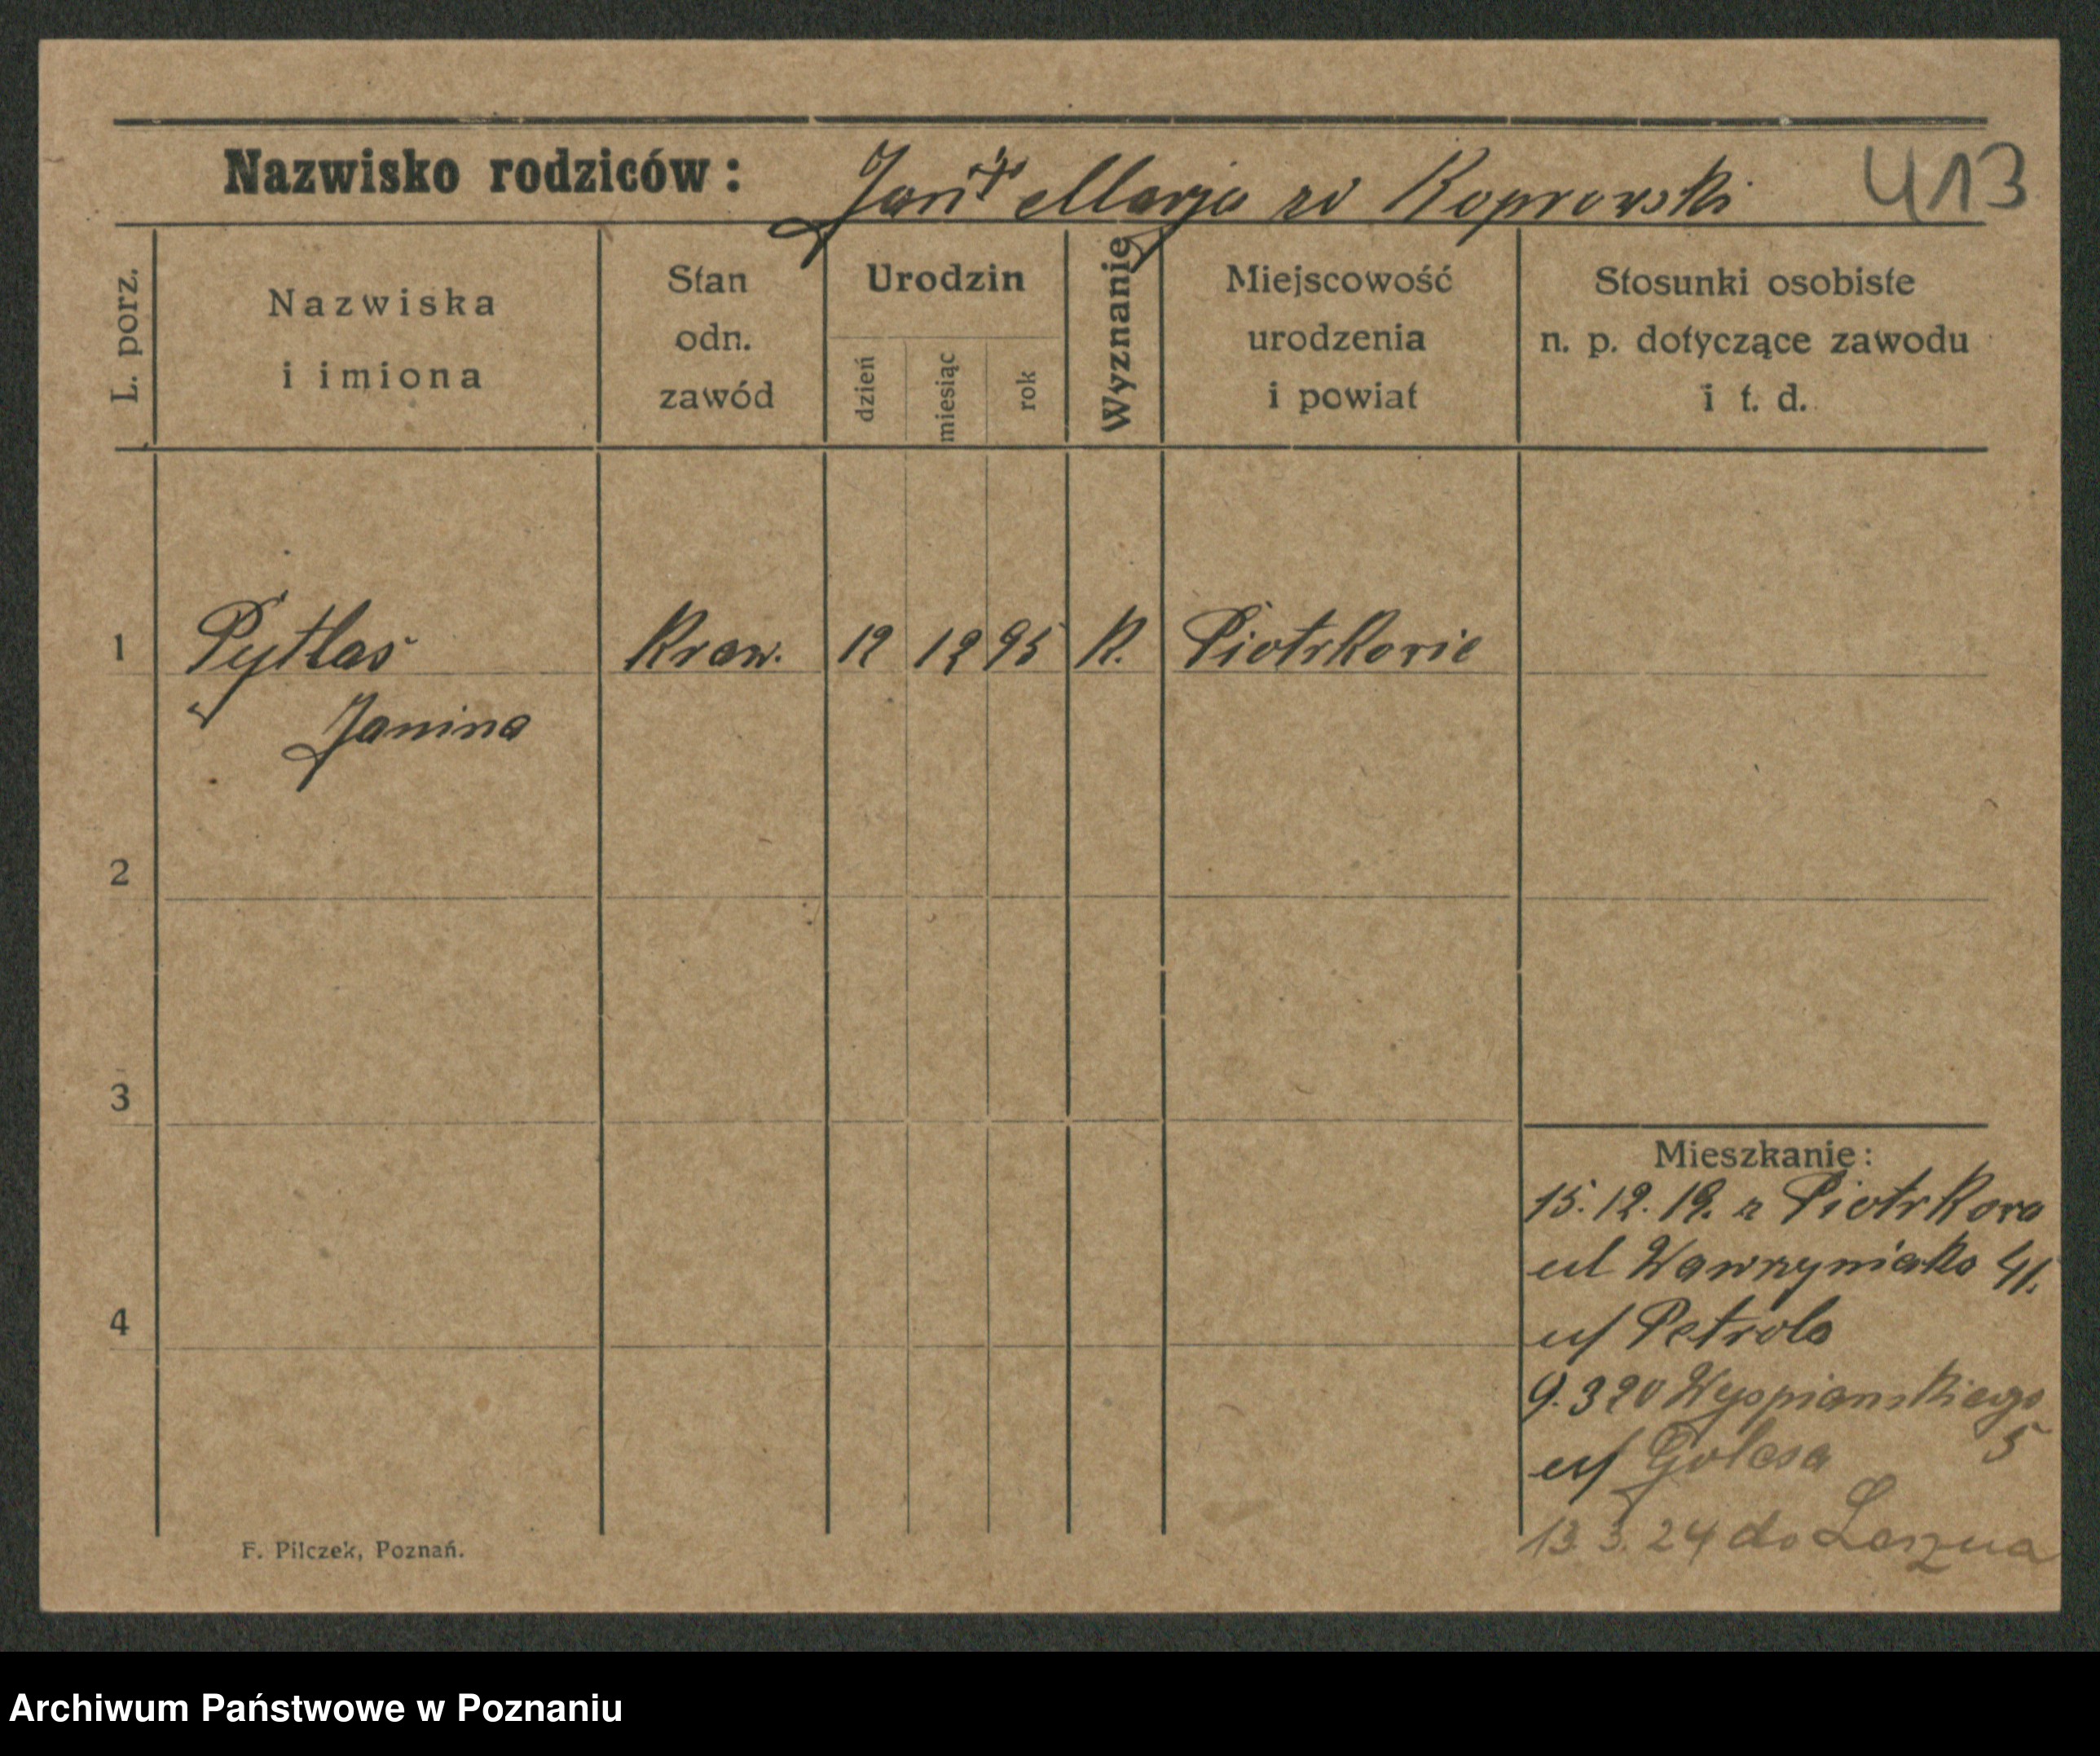 Nazwisko rodziców: Jan Marja zd Koprowski 413
L. porz.
Nazwiska i imiona
Stan odn. zawód
Urodzin
dzień
miesiąc
rok
Wyznanie
Miejscowość urodzenia i powiat
Stosunki osobiste n. p. dotyczące zawodu i t. d.
1 Pytlas Kraw. 12 12 95 K. Piotrkowie
Janina
2
3
4
Mieszkanie:
15.12.19. z Piotrkowa
ul Wawrzyniaka 41.
u/ Petrola
9.3 20 Wyspianskiego
5
u/ Golcsa
13.3.24 do Leszna
F. Pilczek, Poznań.
Archiwum Państwowe w Poznaniu